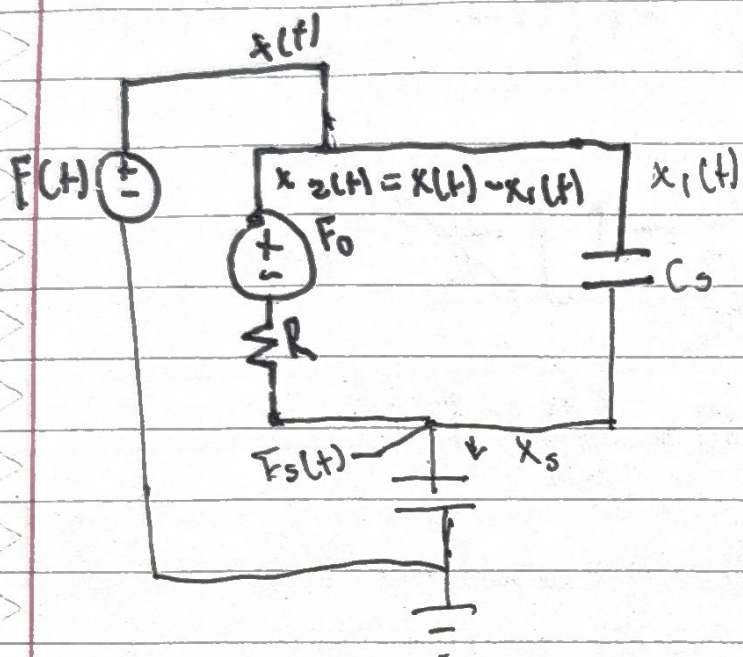 x(t)
F(t)
+
-
x2(t) = x(t) - x1(t)
x1(t)
+
-
F0
Cs
R
Fs(t)
xs